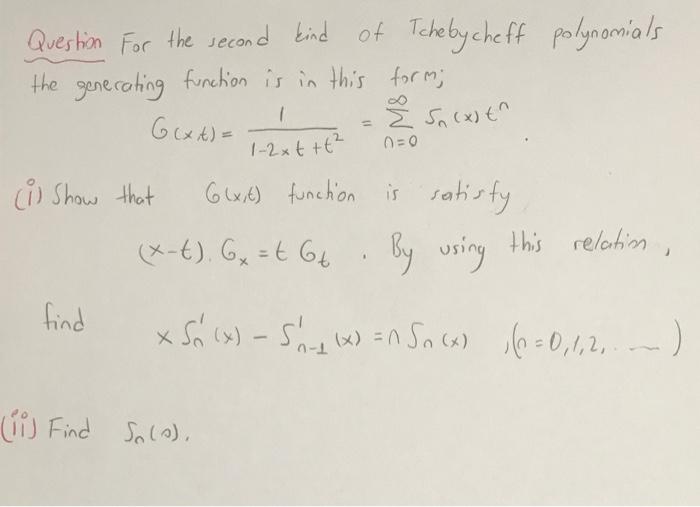 Question For the second kind of Tchebycheff polynomials
the generating function is in this form;
G(x,t) = 1/(1-2xt+t²) = ∑_{n=0}^{∞} Sn(x) tⁿ.
(i) Show that G(x,t) function is satisfy
(x-t). Gx = t Gt . By using this relation,
find x Sn'(x) - S'n-1(x) = n Sn(x) , (n = 0,1,2, ... )
(ii) Find Sn(0).